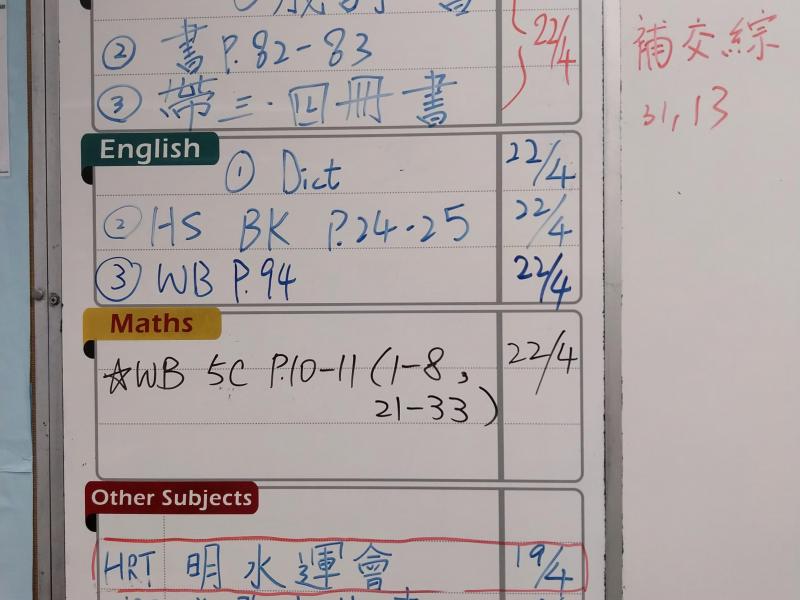 ② 書 P.82-83
22/4
③ 帶三.四冊書
English
① Dict 22/4
② HS BK P.24-25 22/4
③ WB P.94 22/4
Maths
☆WB 5C P.10-11 (1-8, 22/4
21-33)
Other Subjects
HRT 明水運會 19/4
補交綜
31, 13